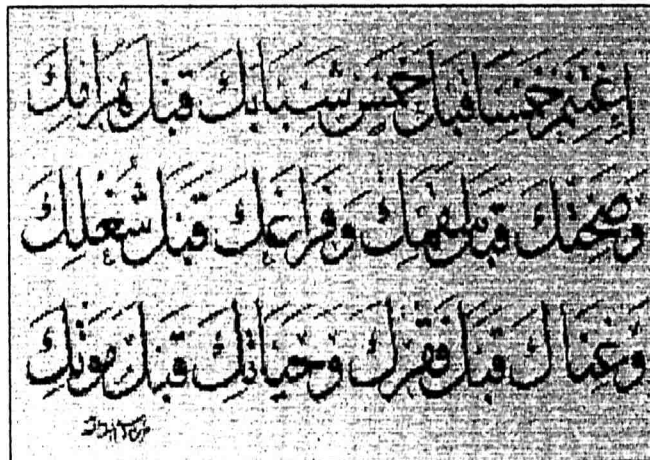 إغتنم خمسا قبل خمس شبابك قبل هرمك
وصحتك قبل سقمك وفراغك قبل شغلك
وغناك قبل فقرك وحياتك قبل موتك